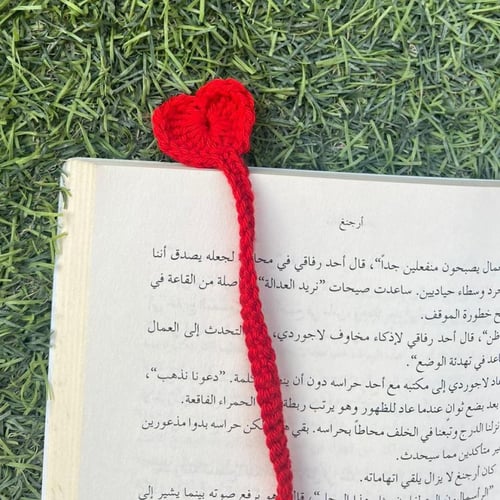 أرجنغ
عمال يصبحون منفعلين جداً“، قال أحد رفاقي في لجعله يصدق أننا
وسطاء حياديين. ساعدت صيحات ”نريد العدالة“ صلة من القاعة في
خطورة الموقف.
قال أحد رفاقي لإذكاء مخاوف لاجوردي، التحدث إلى العمال
في تهدئة الوضع“.
لاجوردي إلى مكتبه مع أحد حراسه دون أن كلمة. ”دعونا نذهب“،
بعد بضع ثوانٍ عندما عاد للظهور وهو يرتب ربطة الحمراء الفاقعة.
نزلنا الدرج وتبعنا في الخلف محاطاً بحراسه. بقي لكن حراسه بدوا مذعورين
غير متأكدين مما سيحدث.
كان أرجنغ لا يزال يلقي اتهاماته.
هو يرفع صوته بينما يشير إلى